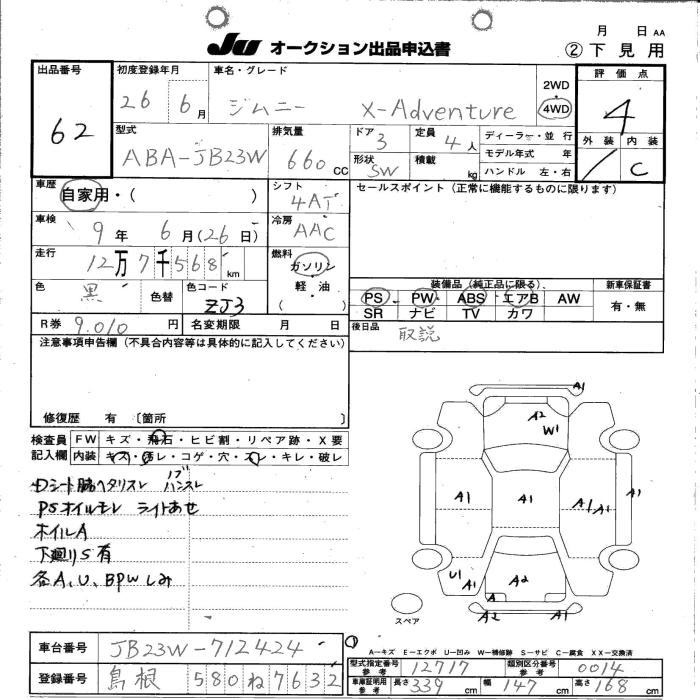 月 日 AA
JU オークション出品申込書
②下見用
出品番号
62
初度登録年月
26 6月
車名・グレード
ジムニー X-Adventure
2WD
4WD
評価点
4
外装 内装
C
型式
ABA-JB23W
排気量
660 CC
ドア
3
定員
4人
形状
SW
積載
kg
ディーラー・並行
モデル年式 年
ハンドル 左・右
車歴
自家用・( )
シフト
4AT
セールスポイント(正常に機能するものに限ります)
車検
9年 6月(26日)
冷房
AAC
走行
12万7千568km
燃料
ガソリン
軽油
( )
色
黒
色替
色コード
ZJ3
装備品(純正品に限る)
新車保証書
PS PW ABS エアB AW
SR ナビ TV カワ
有・無
R券
9.010円
名変期限 月 日
後日品
取説
注意事項申告欄(不具合内容等は具体的に記入してください)
修復歴 有 〔箇所 〕
検査員
記入欄
FW キズ・飛石・ヒビ割・リペア跡・X要
内装 キズ・汚レ・コゲ・穴・スレ・キレ・破レ
Dシート脇ヘタリスレ ハンスレ
ノブ
PSオイルモレ ライトあせ
ホイルA
下廻りS有
各A、U、BPWしみ
A1
A2
W1
A1
A1
A1
A1
A1
U1
A1
A2
A
A2
A1
スペア
A-キズ E-エクボ U-凹み W-補修跡 S-サビ C-腐食 XX-交換済
車台番号
JB23W-712424
登録番号
島根 580ね7632
型式指定番号
参考
12717
類別区分番号
参考
0014
車庫証明用
参考
長さ 339cm
幅 147cm
高さ 168cm